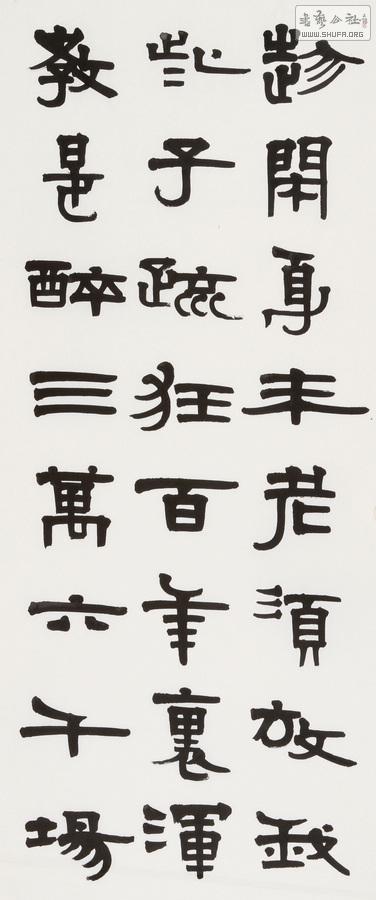 趁閑身未老須放我
些子疏狂百年裏渾
教是醉三萬六千場
書藝公社
WWW.SHUFA.ORG